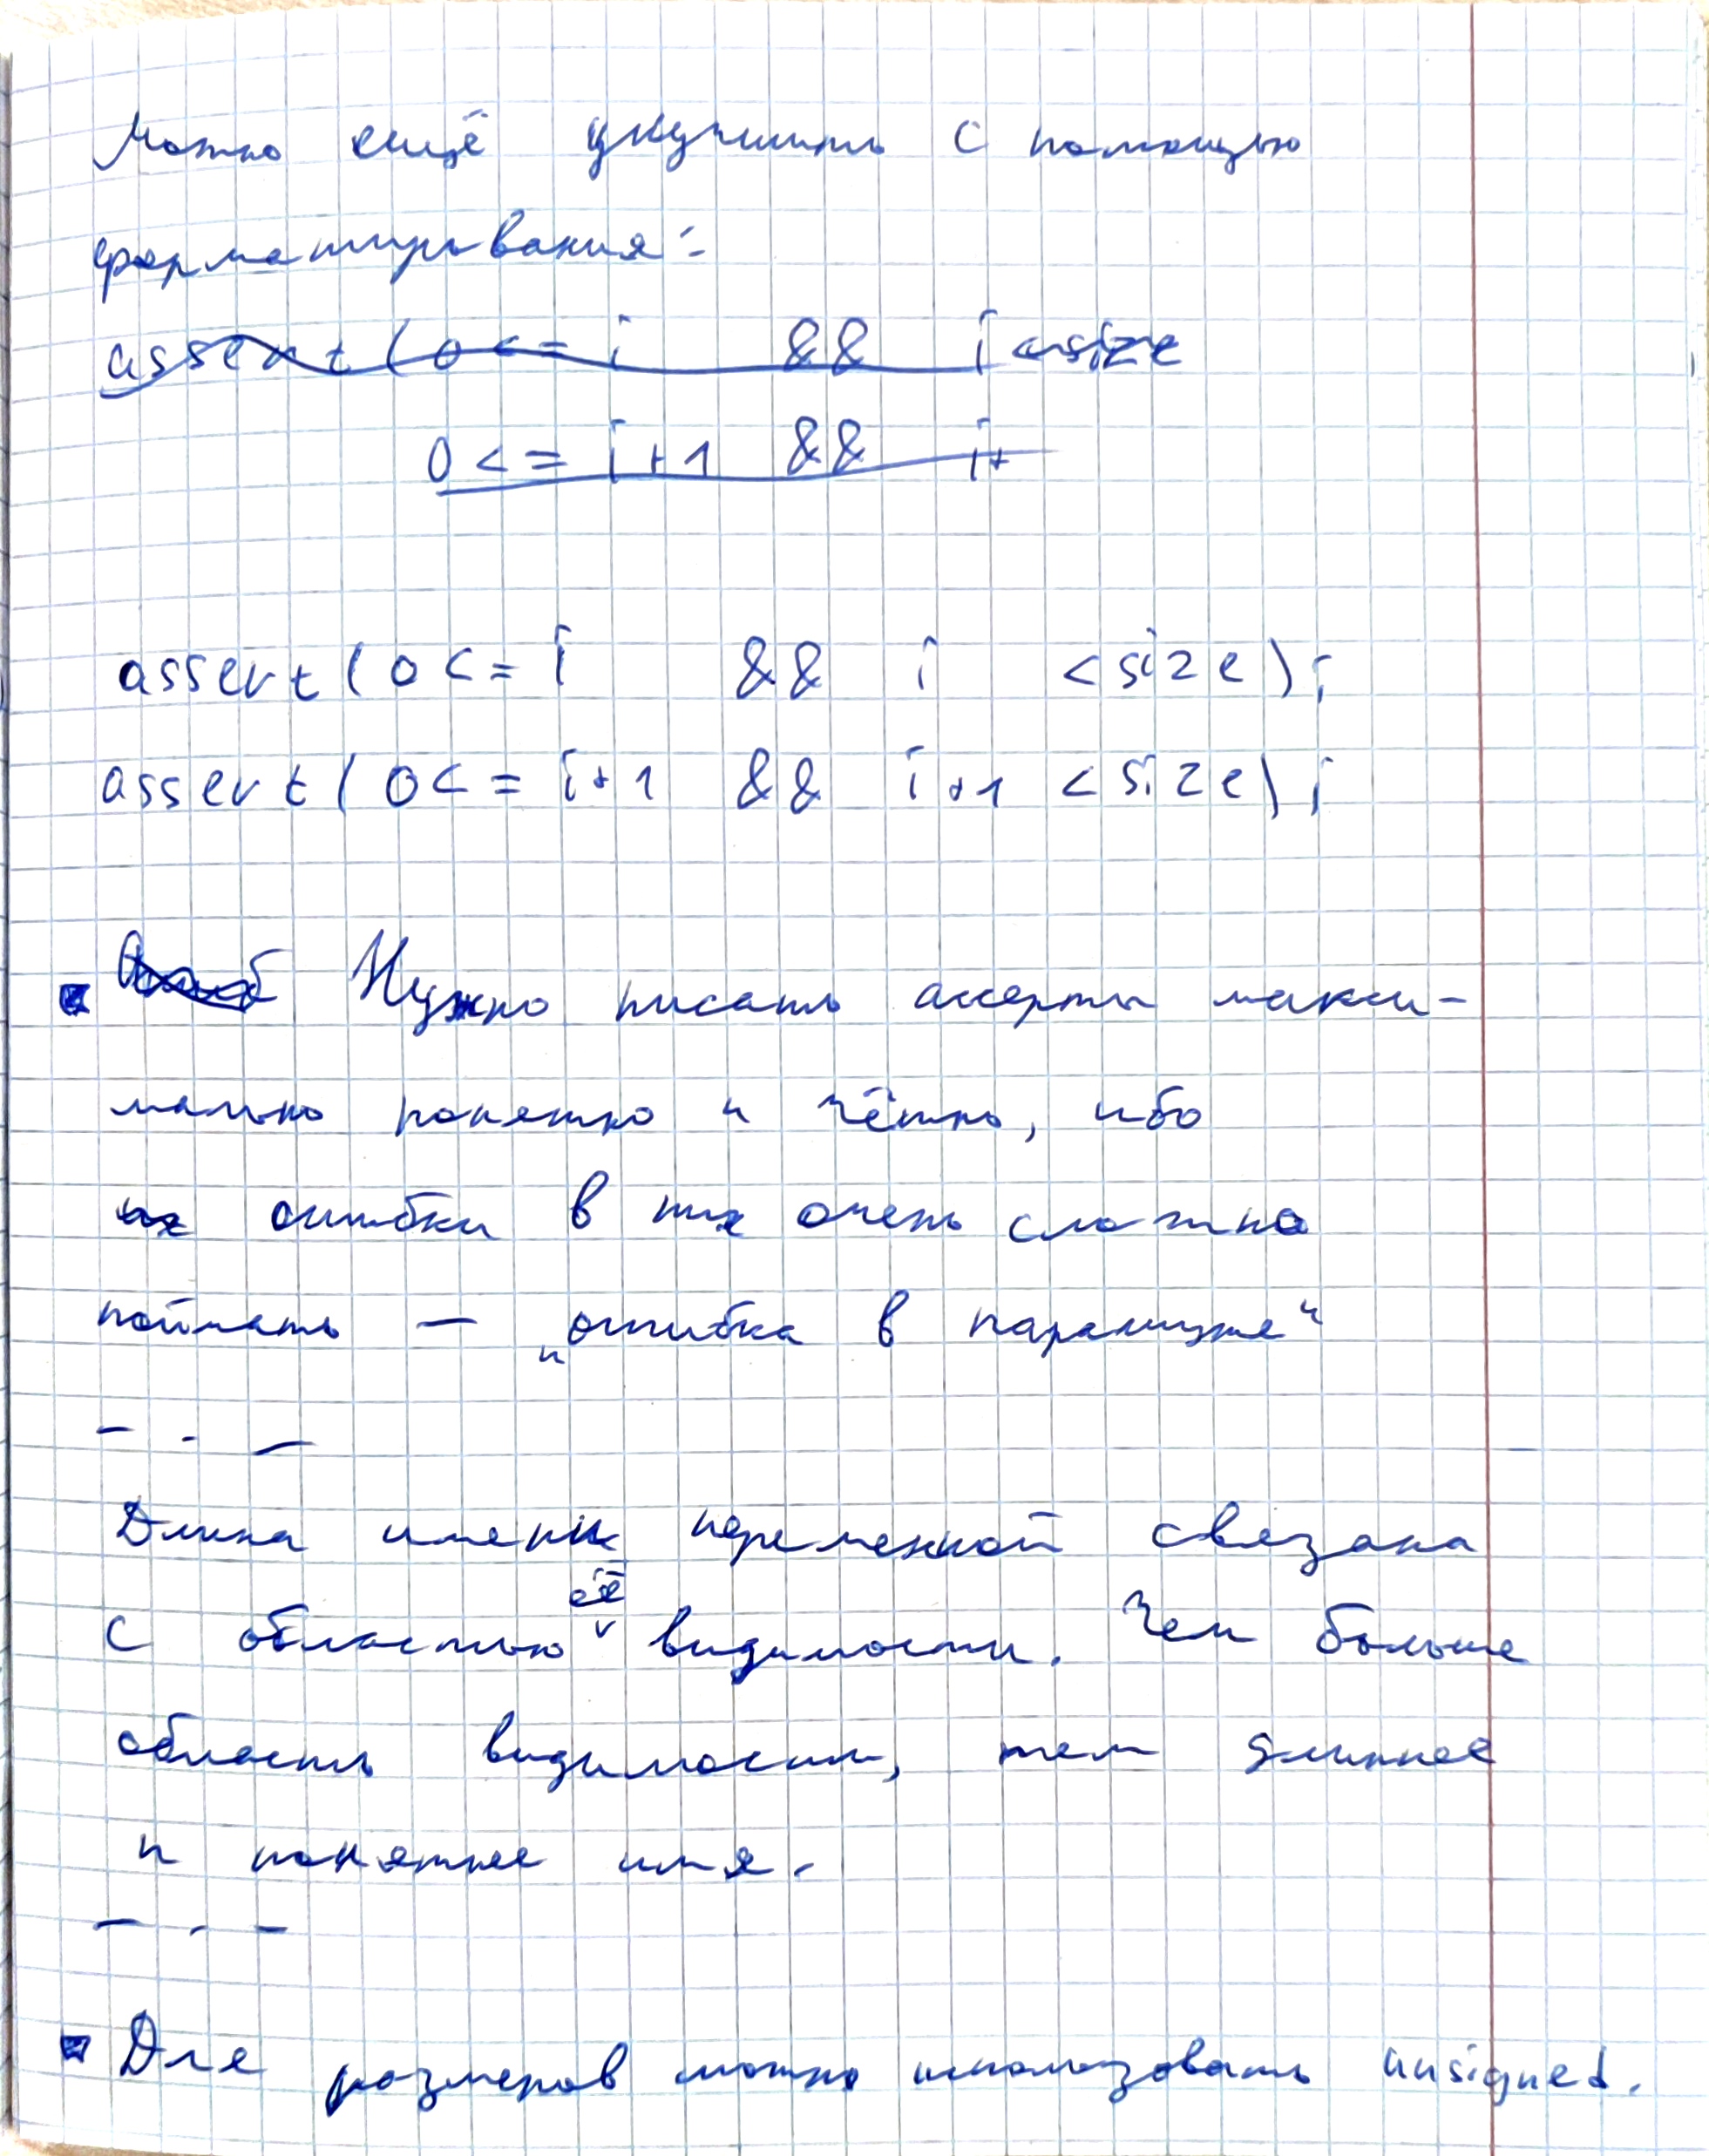 Можно ещё улучшить с помощью
форматирования:
assert(0<=i && i<size
0<=i+1 && i+
assert(0<=i && i <size);
assert(0<=i+1 && i+1 <size);
Нужно писать ассерты макси-
мально понятно и чётко, ибо
их ошибки в них очень сложно
поймать — „ошибка в парашюте“
- - -
Длина имени переменной связана
с областью её видимости. Чем больше
область видимости, тем длиннее
и понятнее имя.
- - -
Для размеров можно использовать unsigned.